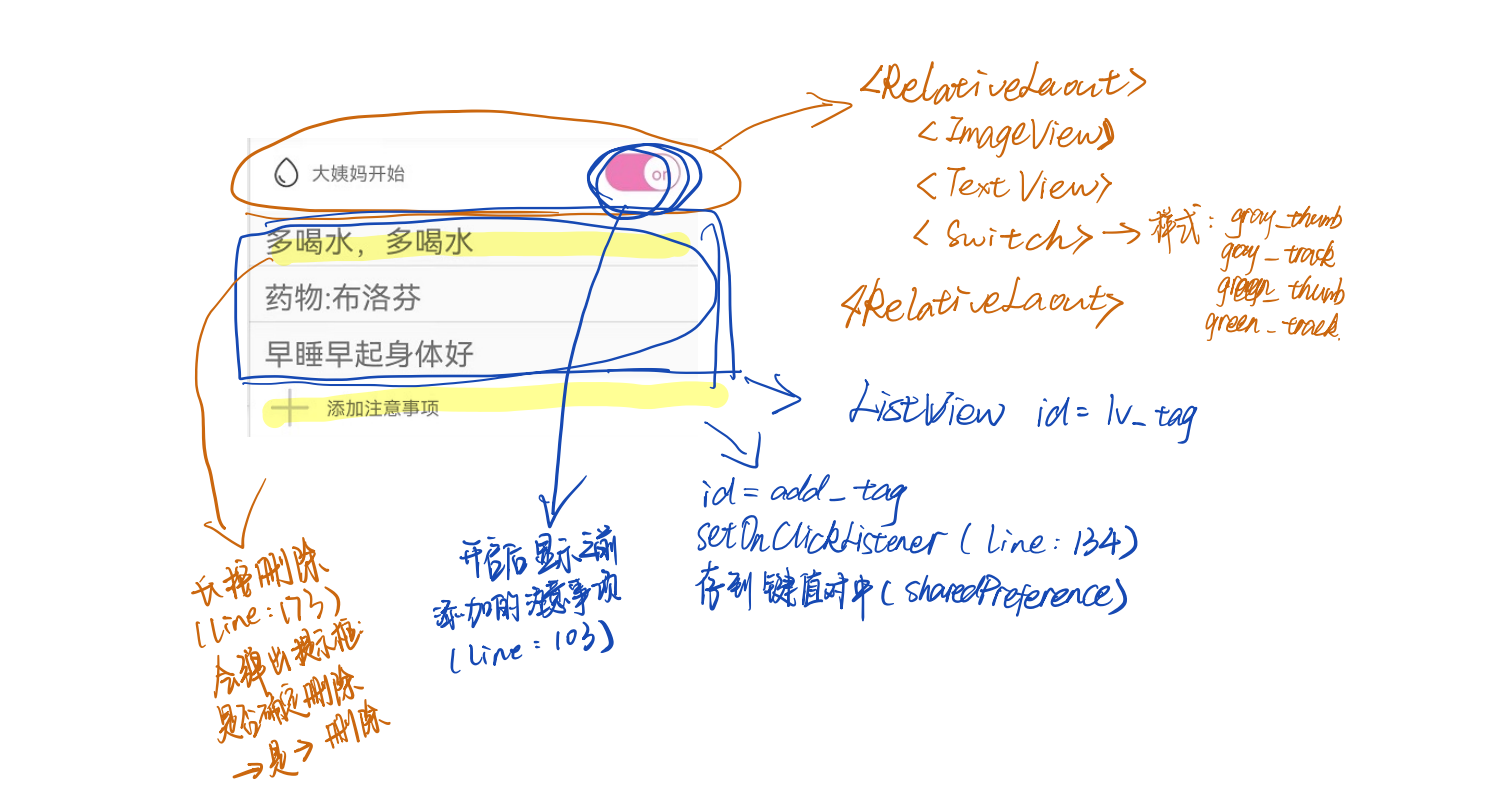 大姨妈开始
on
多喝水，多喝水
药物:布洛芬
早睡早起身体好
添加注意事项
<RelativeLaout>
<ImageView>
<TextView>
<Switch> → 样式: gray_thumb
gray_track
green_thumb
green_track.
</RelativeLaout>
ListView id=lv_tag
id=add_tag
setOnClickListener (line:134)
存到键值对中(sharedPreference)
开启后显示之前
添加的注意事项
(line:103)
长按删除
(line:173)
会弹出提示框:
是否确定删除
→是→删除